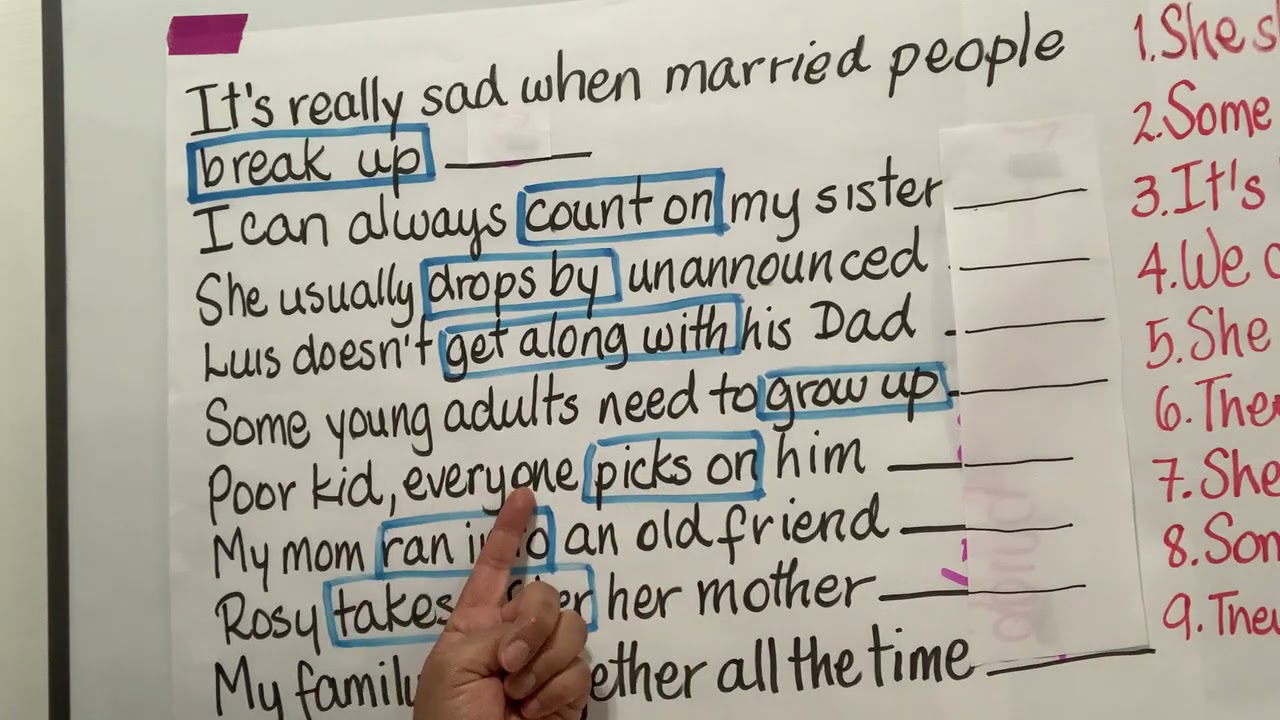 It's really sad when married people
break up
I can always count on my sister
She usually drops by unannounced
Luis doesn't get along with his Dad
Some young adults need to grow up
Poor kid, everyone picks on him
My mom ran an old friend
Rosy takes her mother
My family all the time
1. She
2. Some
3. It's
4. We
5. She
6.
7. She
8.
9.